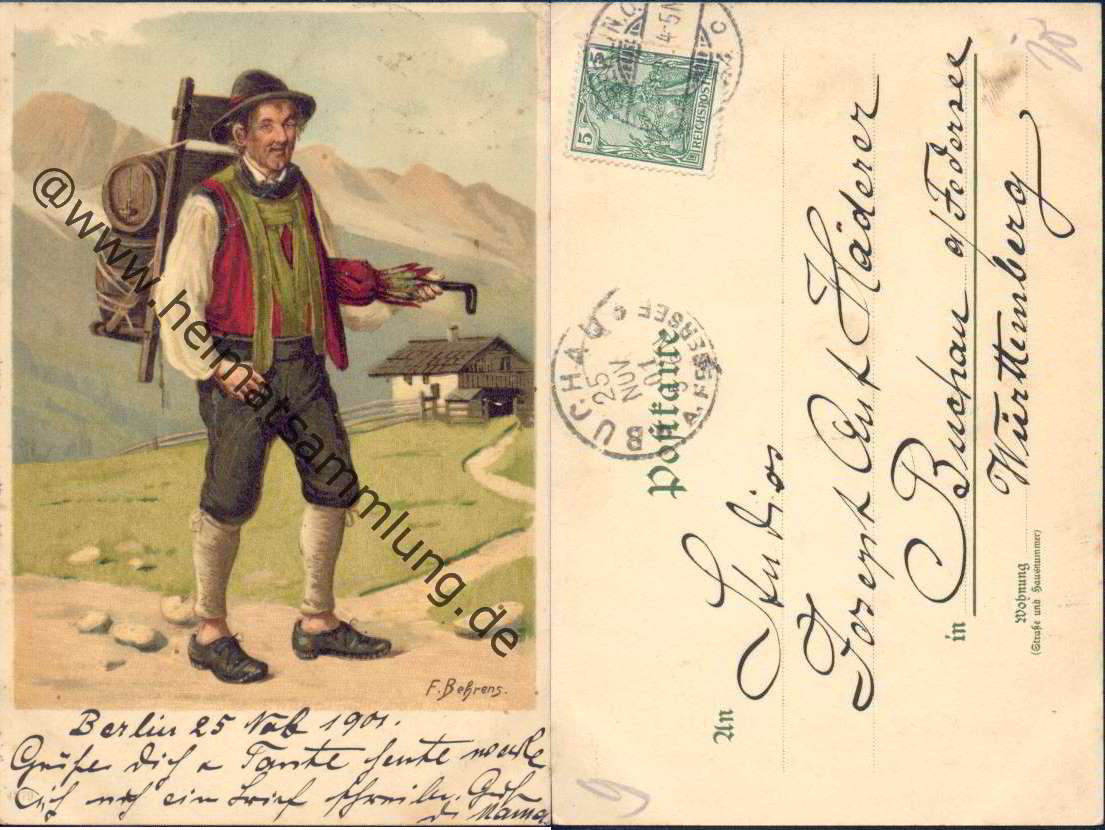 @www.heimatsammlung.de
F. Behrens.
Berlin 25 Nov 1901.
Grüße dich u Tante heute werde
ich noch ein Brief schreiben. Gruß
d. Mama
5
REICHSPOST
4-5N
C
BUCHAU
25
NOV
01
A. FEDERSEE
Postkarte
An
Studios
Joseph Ant Häderer
in Buchau a/Federsee
Württemberg
Wohnung
(Straße und Hausnummer)